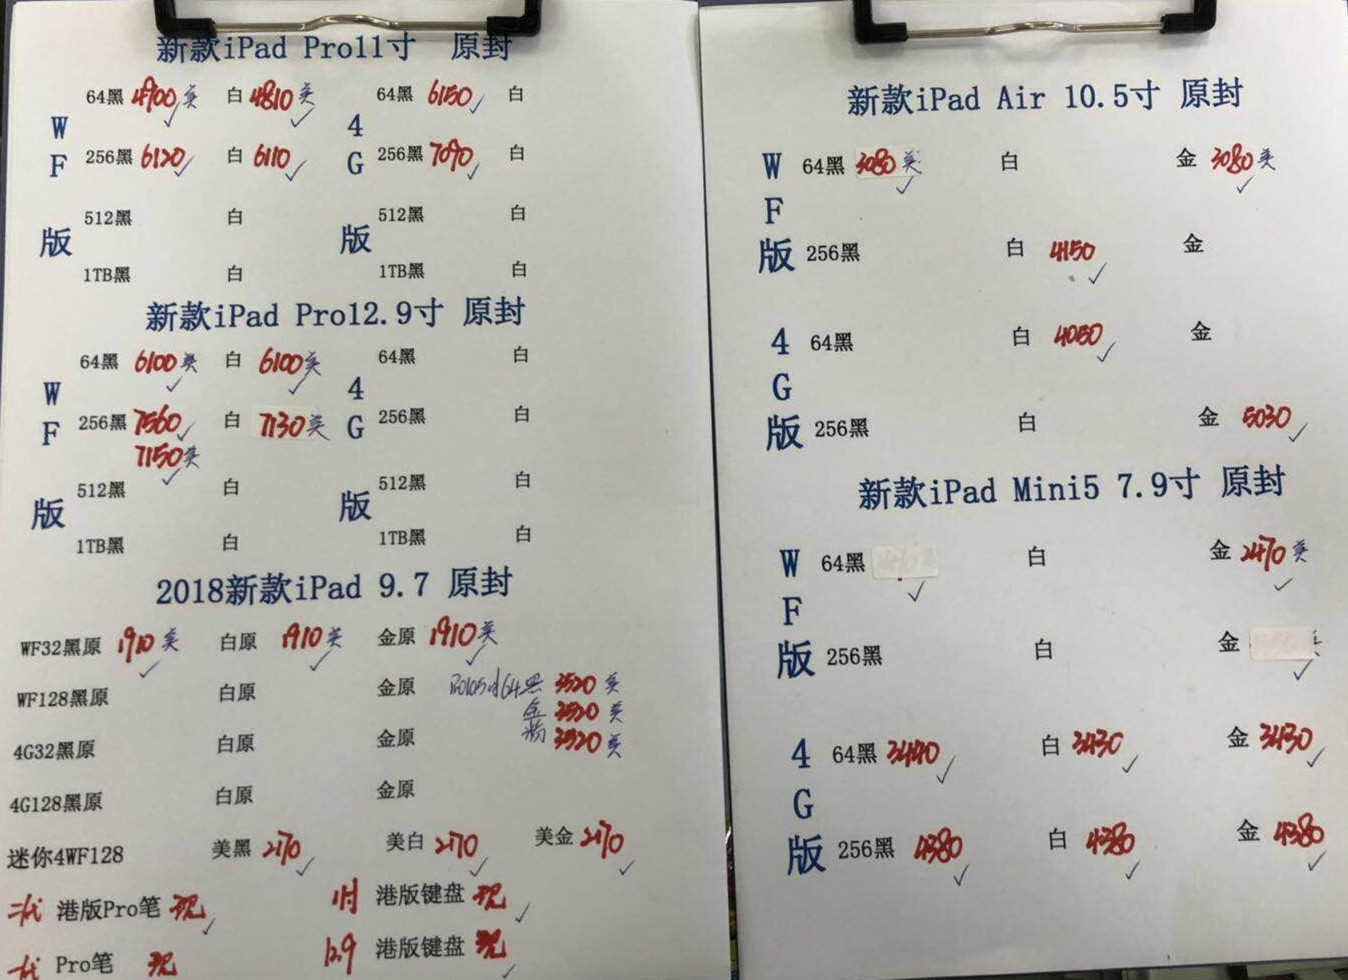 新款iPad Pro11寸 原封
WF版
64黑 4900美 白 4810美
256黑 6120 白 6110
512黑 白
1TB黑 白
4G版
64黑 6150 白
256黑 7090 白
512黑 白
1TB黑 白
新款iPad Pro12.9寸 原封
WF版
64黑 6100美 白 6100美
256黑 7560 白 7130美
7150美
512黑 白
1TB黑 白
4G版
64黑 白
256黑 白
512黑 白
1TB黑 白
2018新款iPad 9.7 原封
WF32黑原 1910美 白原 1910美 金原 1910美
WF128黑原 白原 金原
64黑 3520美
金 3520美
粉 3520美
4G32黑原 白原 金原
4G128黑原 白原 金原
迷你4WF128 美黑 2170 美白 2170 美金 2170
二代 港版Pro笔 现 11寸 港版键盘 现
一代 Pro笔 现 12.9 港版键盘 现
新款iPad Air 10.5寸 原封
WF版
64黑 3080美 白 金 3080美
256黑 白 4150 金
4G版
64黑 白 4050 金
256黑 白 金 5030
新款iPad Mini5 7.9寸 原封
WF版
64黑 白 金 2470美
256黑 白 金
4G版
64黑 3440 白 3430 金 3430
256黑 4380 白 4380 金 4380